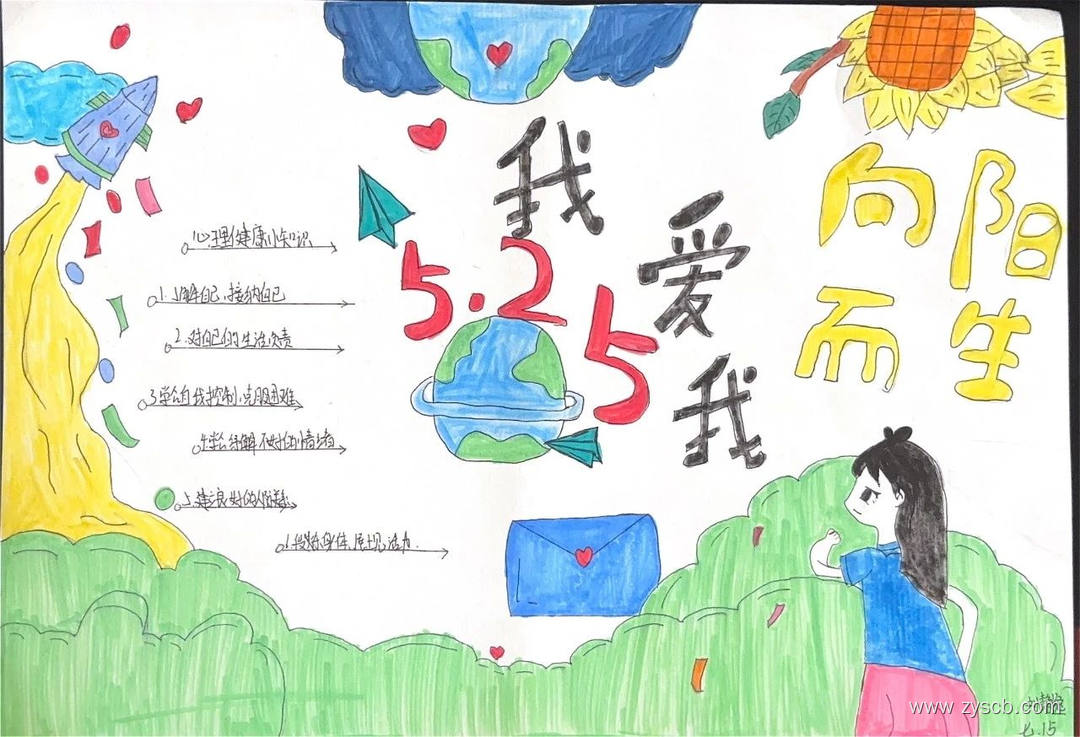 我
爱
我
5.25
向阳
而生
心理健康小知识
1.了解自己,接纳自己
2.对自己的生活负责
3.学会自我控制,克服困难
4.学会纾解不好的情绪
5.建立良好的人际关系
6.锻炼身体,展现活力.
www.zyscb.com
七.15